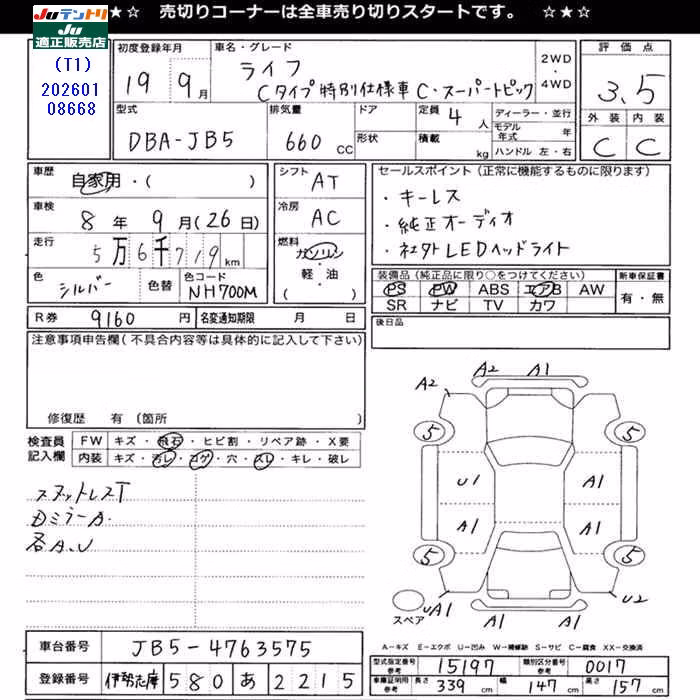 ★☆ 売切りコーナーは全車売り切りスタートです。 ☆★☆
JUテントリ
JU
適正販売店
(T1)
202601
08668
初度登録年月 19 9月
車名・グレード ライフ
Cタイプ特別仕様車 C・スーパートピック
2WD
4WD
評価点 3.5
外装 内装
C C
型式 DBA-JB5
排気量 660 CC
ドア
形状
定員 4人
積載 kg
ディーラー・並行
モデル年式 年
ハンドル 左・右
車歴 自家用・( )
シフト AT
セールスポイント (正常に機能するものに限ります)
・キーレス
・純正オーディオ
・社外LEDヘッドライト
車検 8年 9月(26日)
冷房 AC
走行 5万6千719km
燃料 ガソリン
・
軽・油
( )
色 シルバー 色替
色コード NH700M
装備品(純正品に限り○をつけてください)
PS PW ABS エアB AW
SR ナビ TV カワ
新車保証書
有・無
R券 9160 円
名変通知期限 月 日
後日品
注意事項申告欄(不具合内容等は具体的に記入して下さい)
修復歴 有 (箇所 )
検査員記入欄
FW キズ・飛石・ヒビ割・リペア跡・X要
内装 キズ・汚レ・コゲ・穴・スレ・キレ・破レ
スタットレスT
Dミラー A.
各A.U
A2 A2 A1
5 5
U1 A1
A1 A1
5 5
スペア
UA1 A1 A1 U2
A-キズ E-エクボ U-凹み W-補修跡 S-サビ C-腐食 XX-交換済
車台番号 JB5-4763575
登録番号 580 あ 2215
型式指定番号 参考 15197
類別区分番号 参考 0017
車庫証明用 参考 長さ 339 cm 幅 147 cm 高さ 157 cm